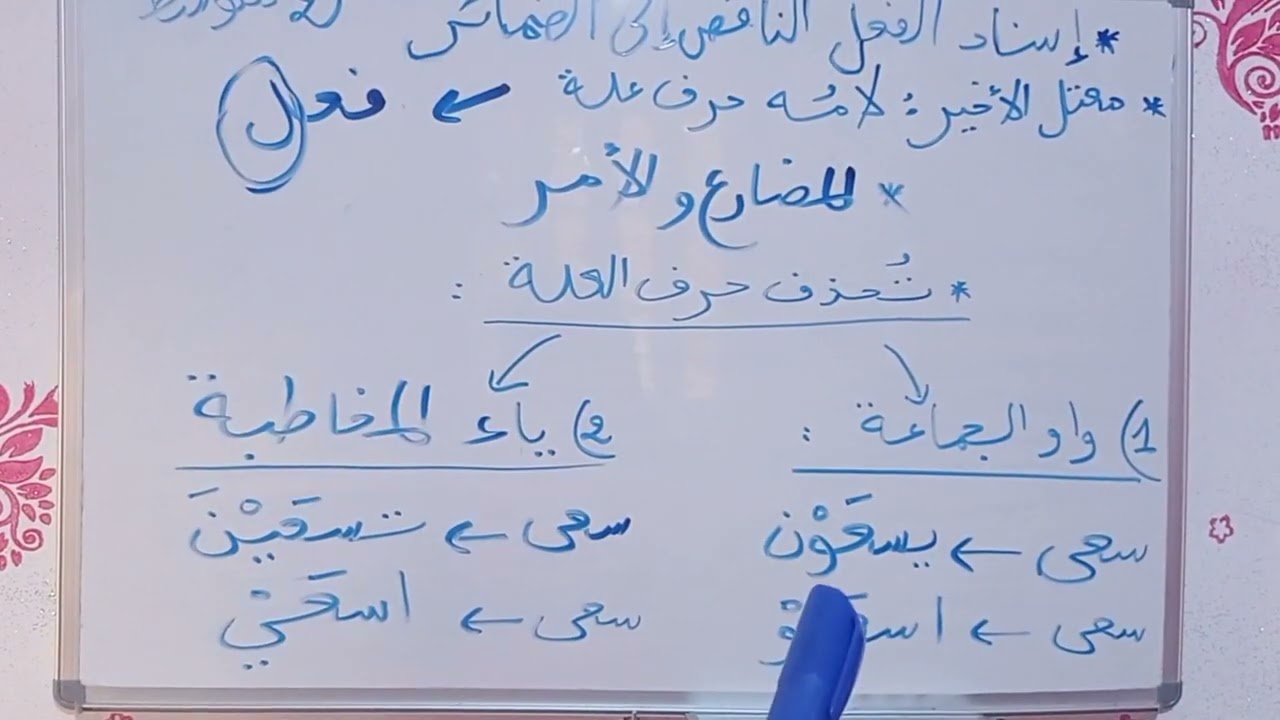 * إسناد الفعل الناقص إلى الضمائر
* معتل الأخير: لامُه حرف علة ← فعل
* المضارع والأمر
* تُحذف حرف العلة :
1) واو الجماعة :
سعى ← يسعَوْن
سعى ←
2) ياء المخاطبة
سعى ← تسعَيْنَ
سعى ← اسعَيْ